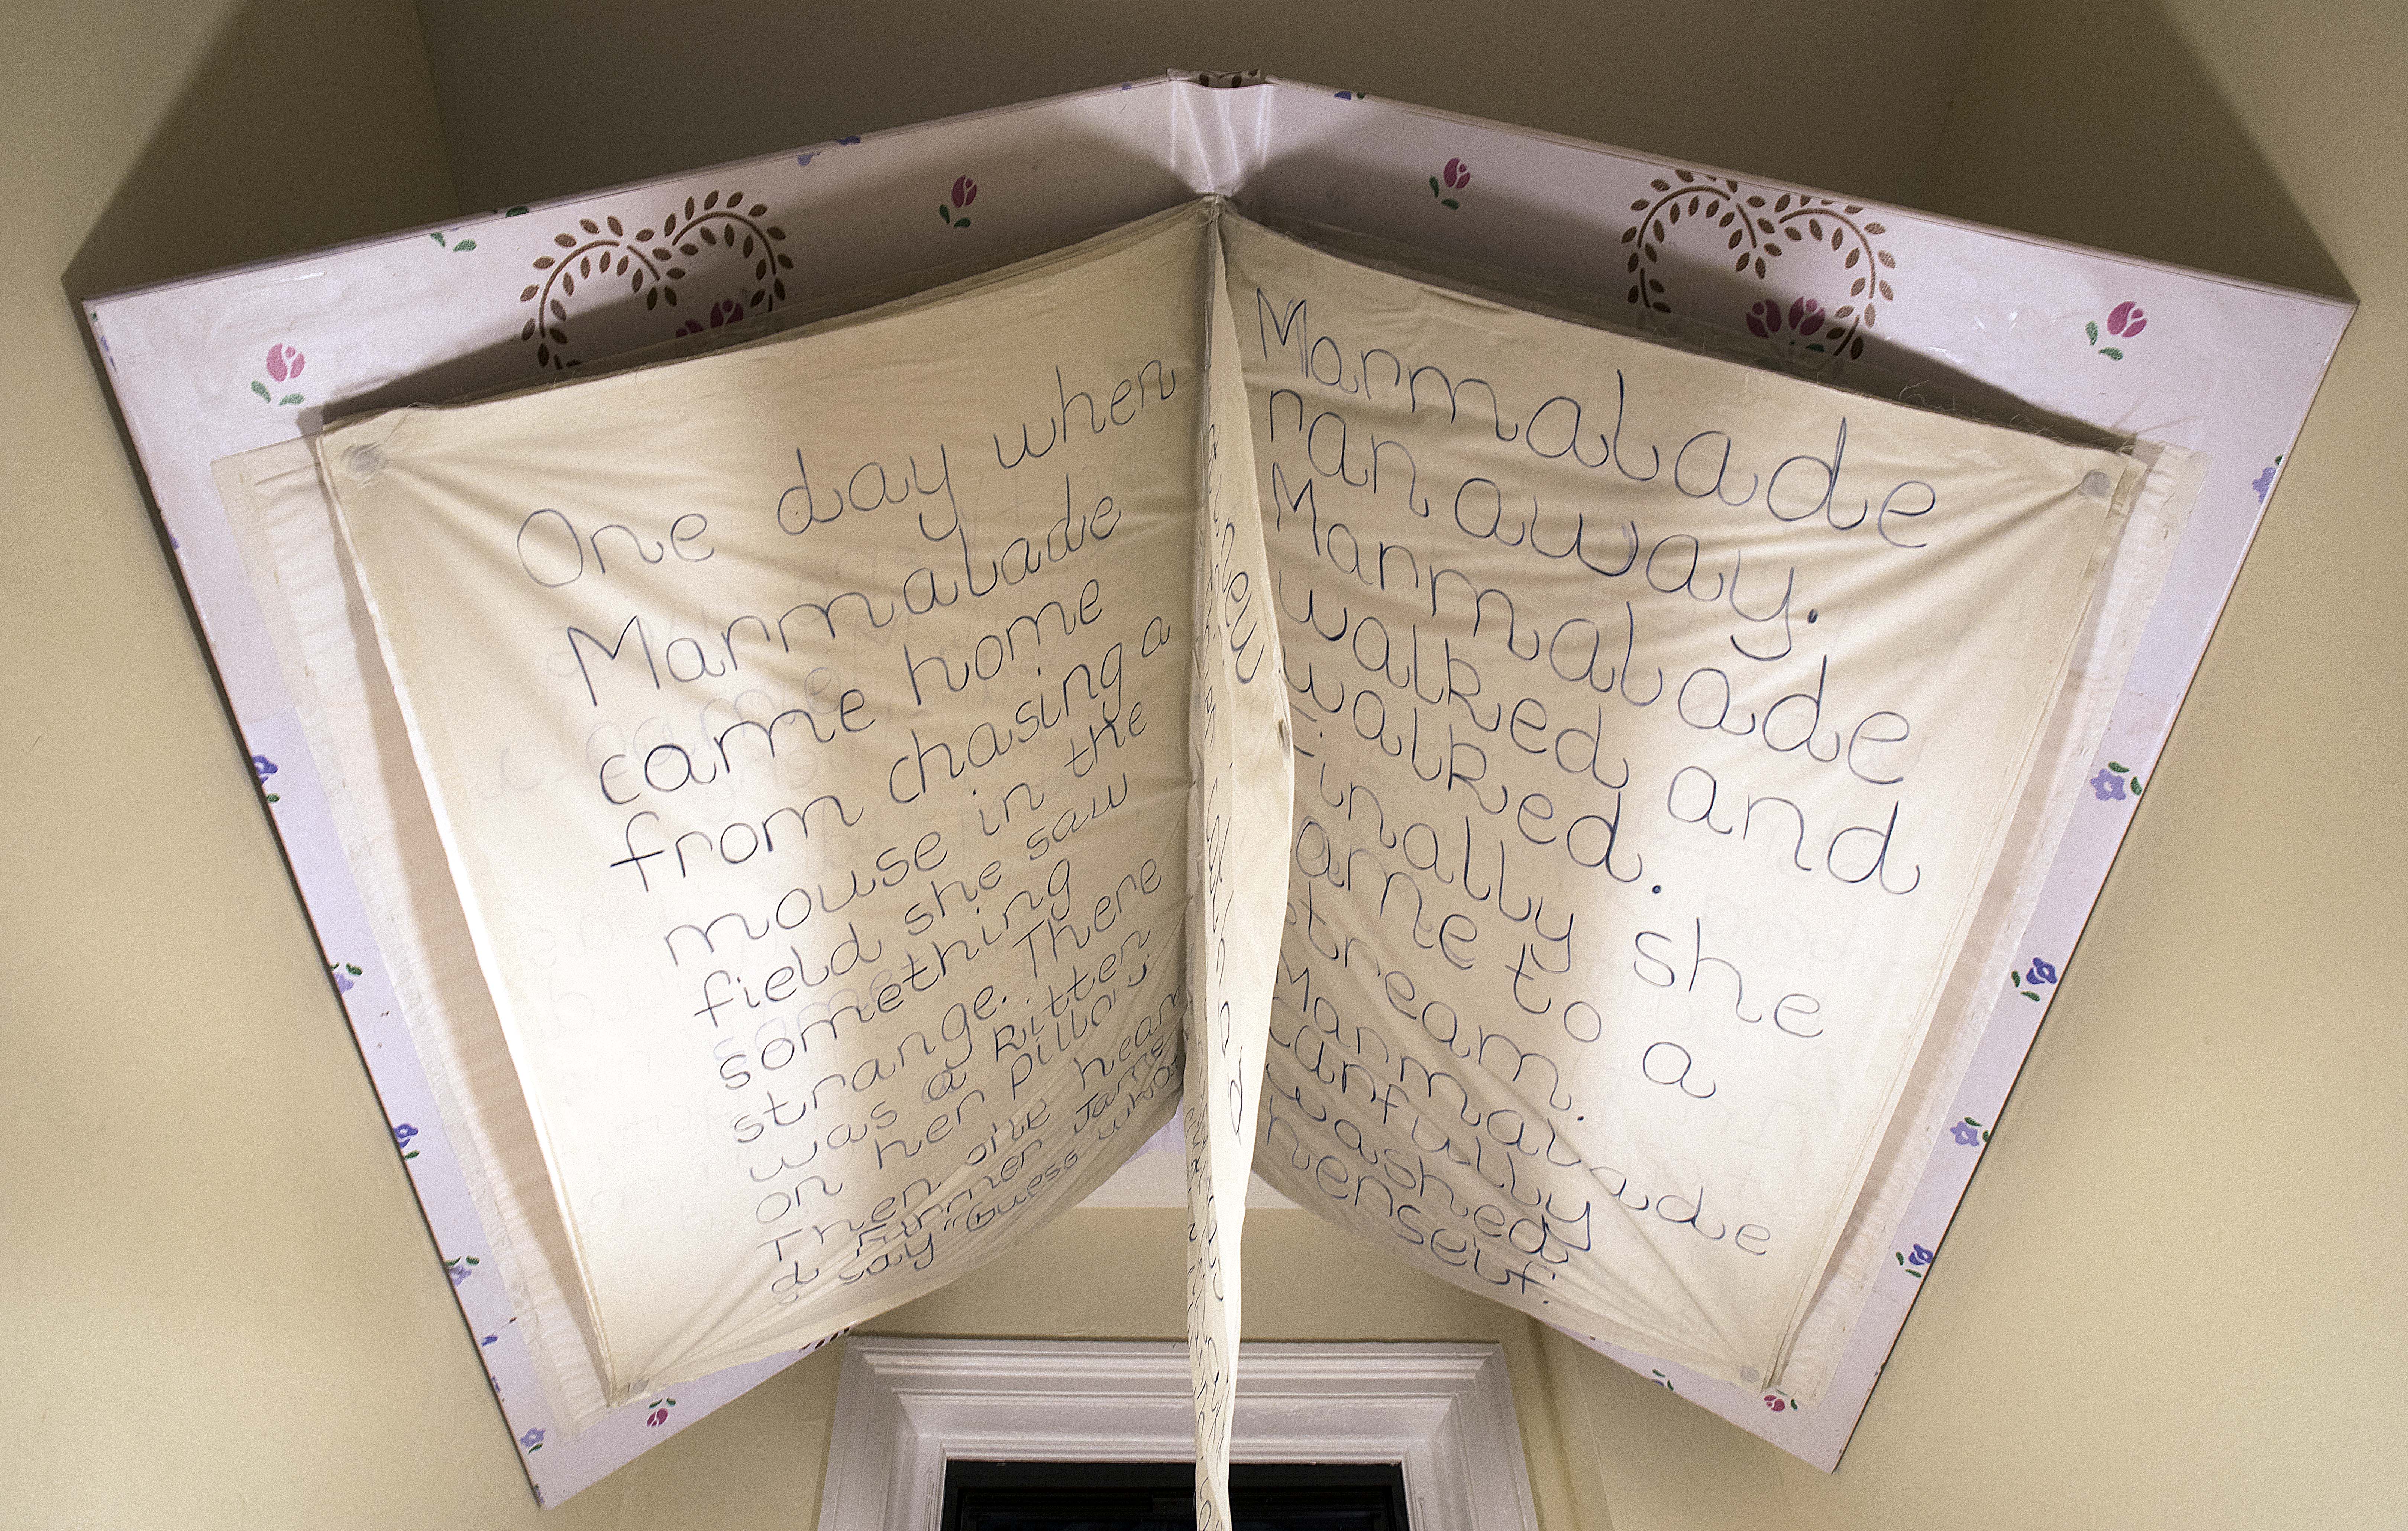 One day when
Marmalade
came home
from chasing a
mouse in the
field she saw
something
strange. There
was a kitten
on her pillow.
Then she hear
d kitten Jame
say "Guess what
Marmalade
ran away.
Marmalade
walked and
walked.
Finally she
came to a
stream.
Marmalade
carfully
washed
herself.